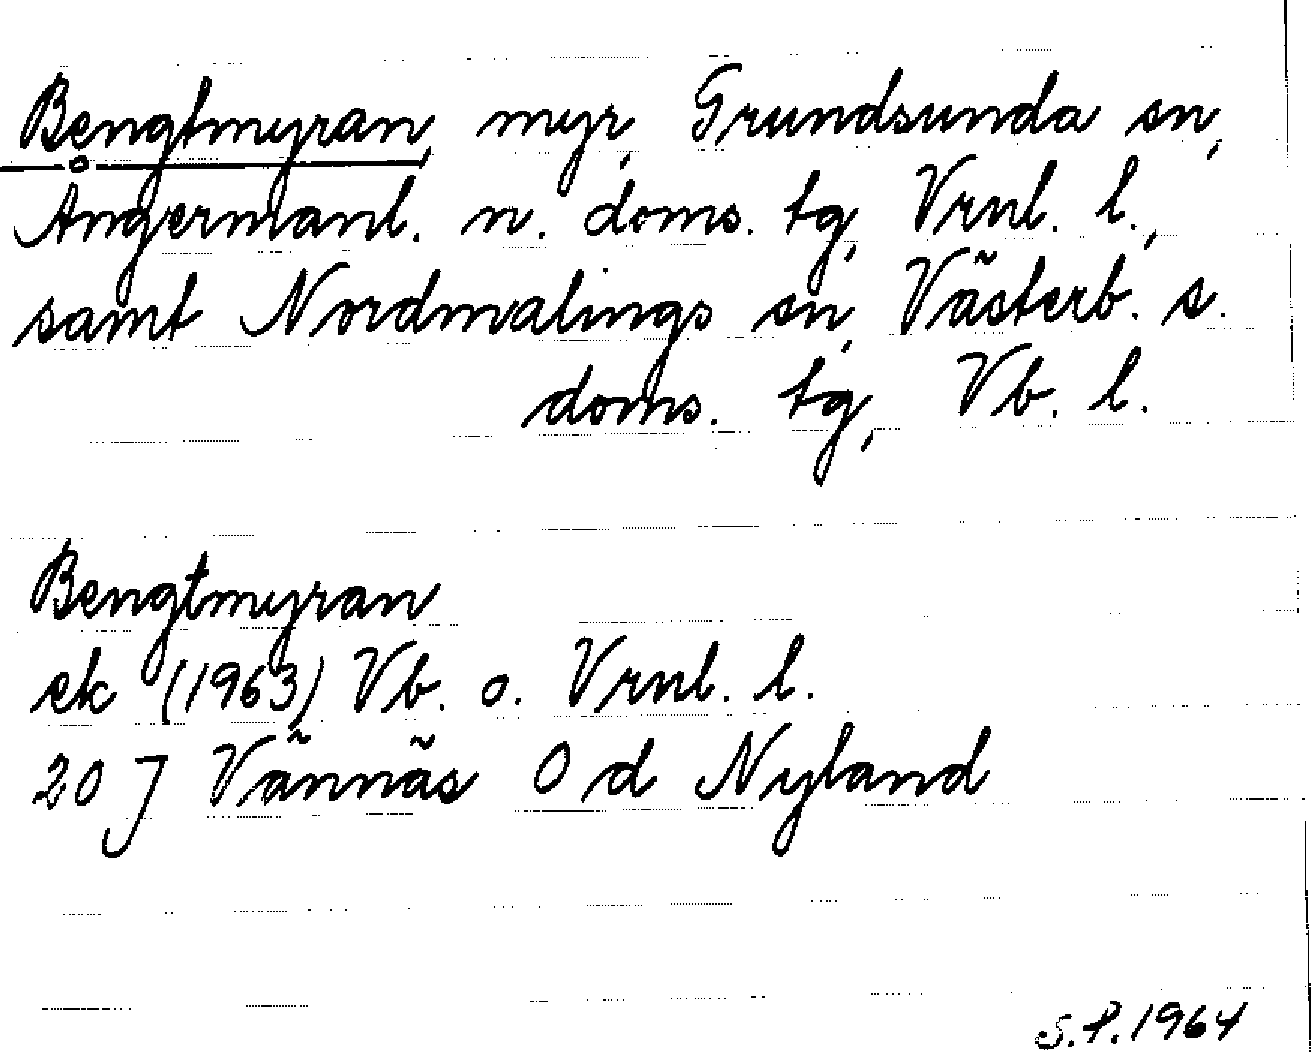 Bengtmyran, myr, Grundsunda sn,
Ångermanl. n. doms. tg, Vrnl. l.,
samt Nordmalings sn, Västerb. s.
doms. tg, Vb. l.
Bengtmyran
ek (1963) Vb. o. Vrnl. l.
20 J Vännäs 0 d Nyland
S.P. 1964